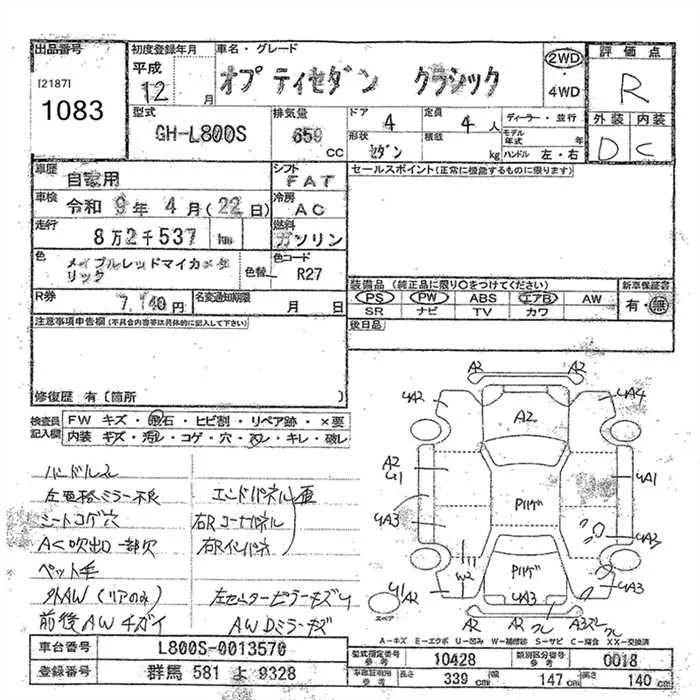 出品番号 初度登録年月 車名・グレード 評価点
[2187]
1083
平成 12 月
オプティセダン クラシック
2WD
・4WD
R
型式 GH-L800S
排気量 659 CC
ドア 4
定員 4 人
形状 セダン
積載 kg
ディーラー・並行
モデル年式 年
ハンドル 左・右
外装 内装
D C
車歴 自家用
シフト FAT
セールスポイント(正常に機能するものに限ります)
車検 令和 9年 4月(22日)
冷房 AC
走行 8万2千537 km
燃料 ガソリン
色 メイプルレッドマイカメタリック
色替
色コード R27
装備品(純正品に限り○をつけてください) 新車保証書
PS PW ABS エアB AW 有・無
SR ナビ TV カワ
後日品
R券 7,140円 名変通知期限 月 日
注意事項申告欄(不具合内容等は具体的に記入して下さい)
修復歴 有〔箇所 〕
検査員記入欄
FW キズ・飛石・ヒビ割・リペア跡・×要
内装 キズ・汚レ・コゲ・穴・・キレ・破レ
ハンドルスレ
左電格ミラー不良 エンドパネル歪
シートコゲ穴 右Rコーナパネル
AC吹出口一部欠 右Rインパネ
ペット毛
外AW(リアのみ) 左センターピラーキズ
前後AWチガイ AWDミラーキズ
A2 A2
4A2 4A4
A2
A2 4A1
41
PリゲP
4A3 4A3
Pリゲ
W2 4A3
41 A2 4A3
スペア
A2 A2 クレ A3スレ クレ
A-キズ E-エクボ U-凹み W-補修跡 S-サビ C-腐食 XX-交換済
車台番号 L800S-0013570
型式指定番号 参考 10428 類別区分番号 参考 0018
登録番号 群馬 581 よ 9328
車庫証明用 参考 長さ 339cm 幅 147cm 高さ 140cm